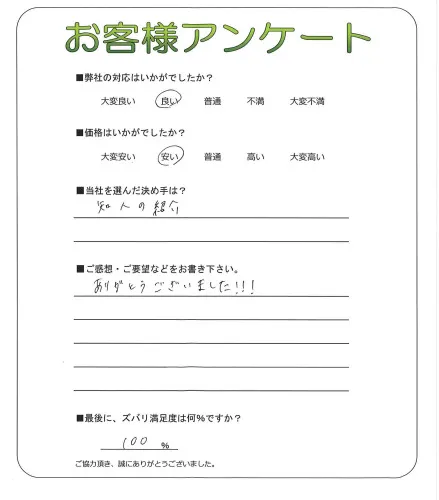 お客様アンケート
■弊社の対応はいかがでしたか?
大変良い 良い 普通 不満 大変不満
■価格はいかがでしたか?
大変安い 安い 普通 高い 大変高い
■当社を選んだ決め手は?
知人の紹介
■ご感想・ご要望などをお書き下さい。
ありがとうございました!!!
■最後に、ズバリ満足度は何%ですか?
100 %
ご協力頂き、誠にありがとうございました。